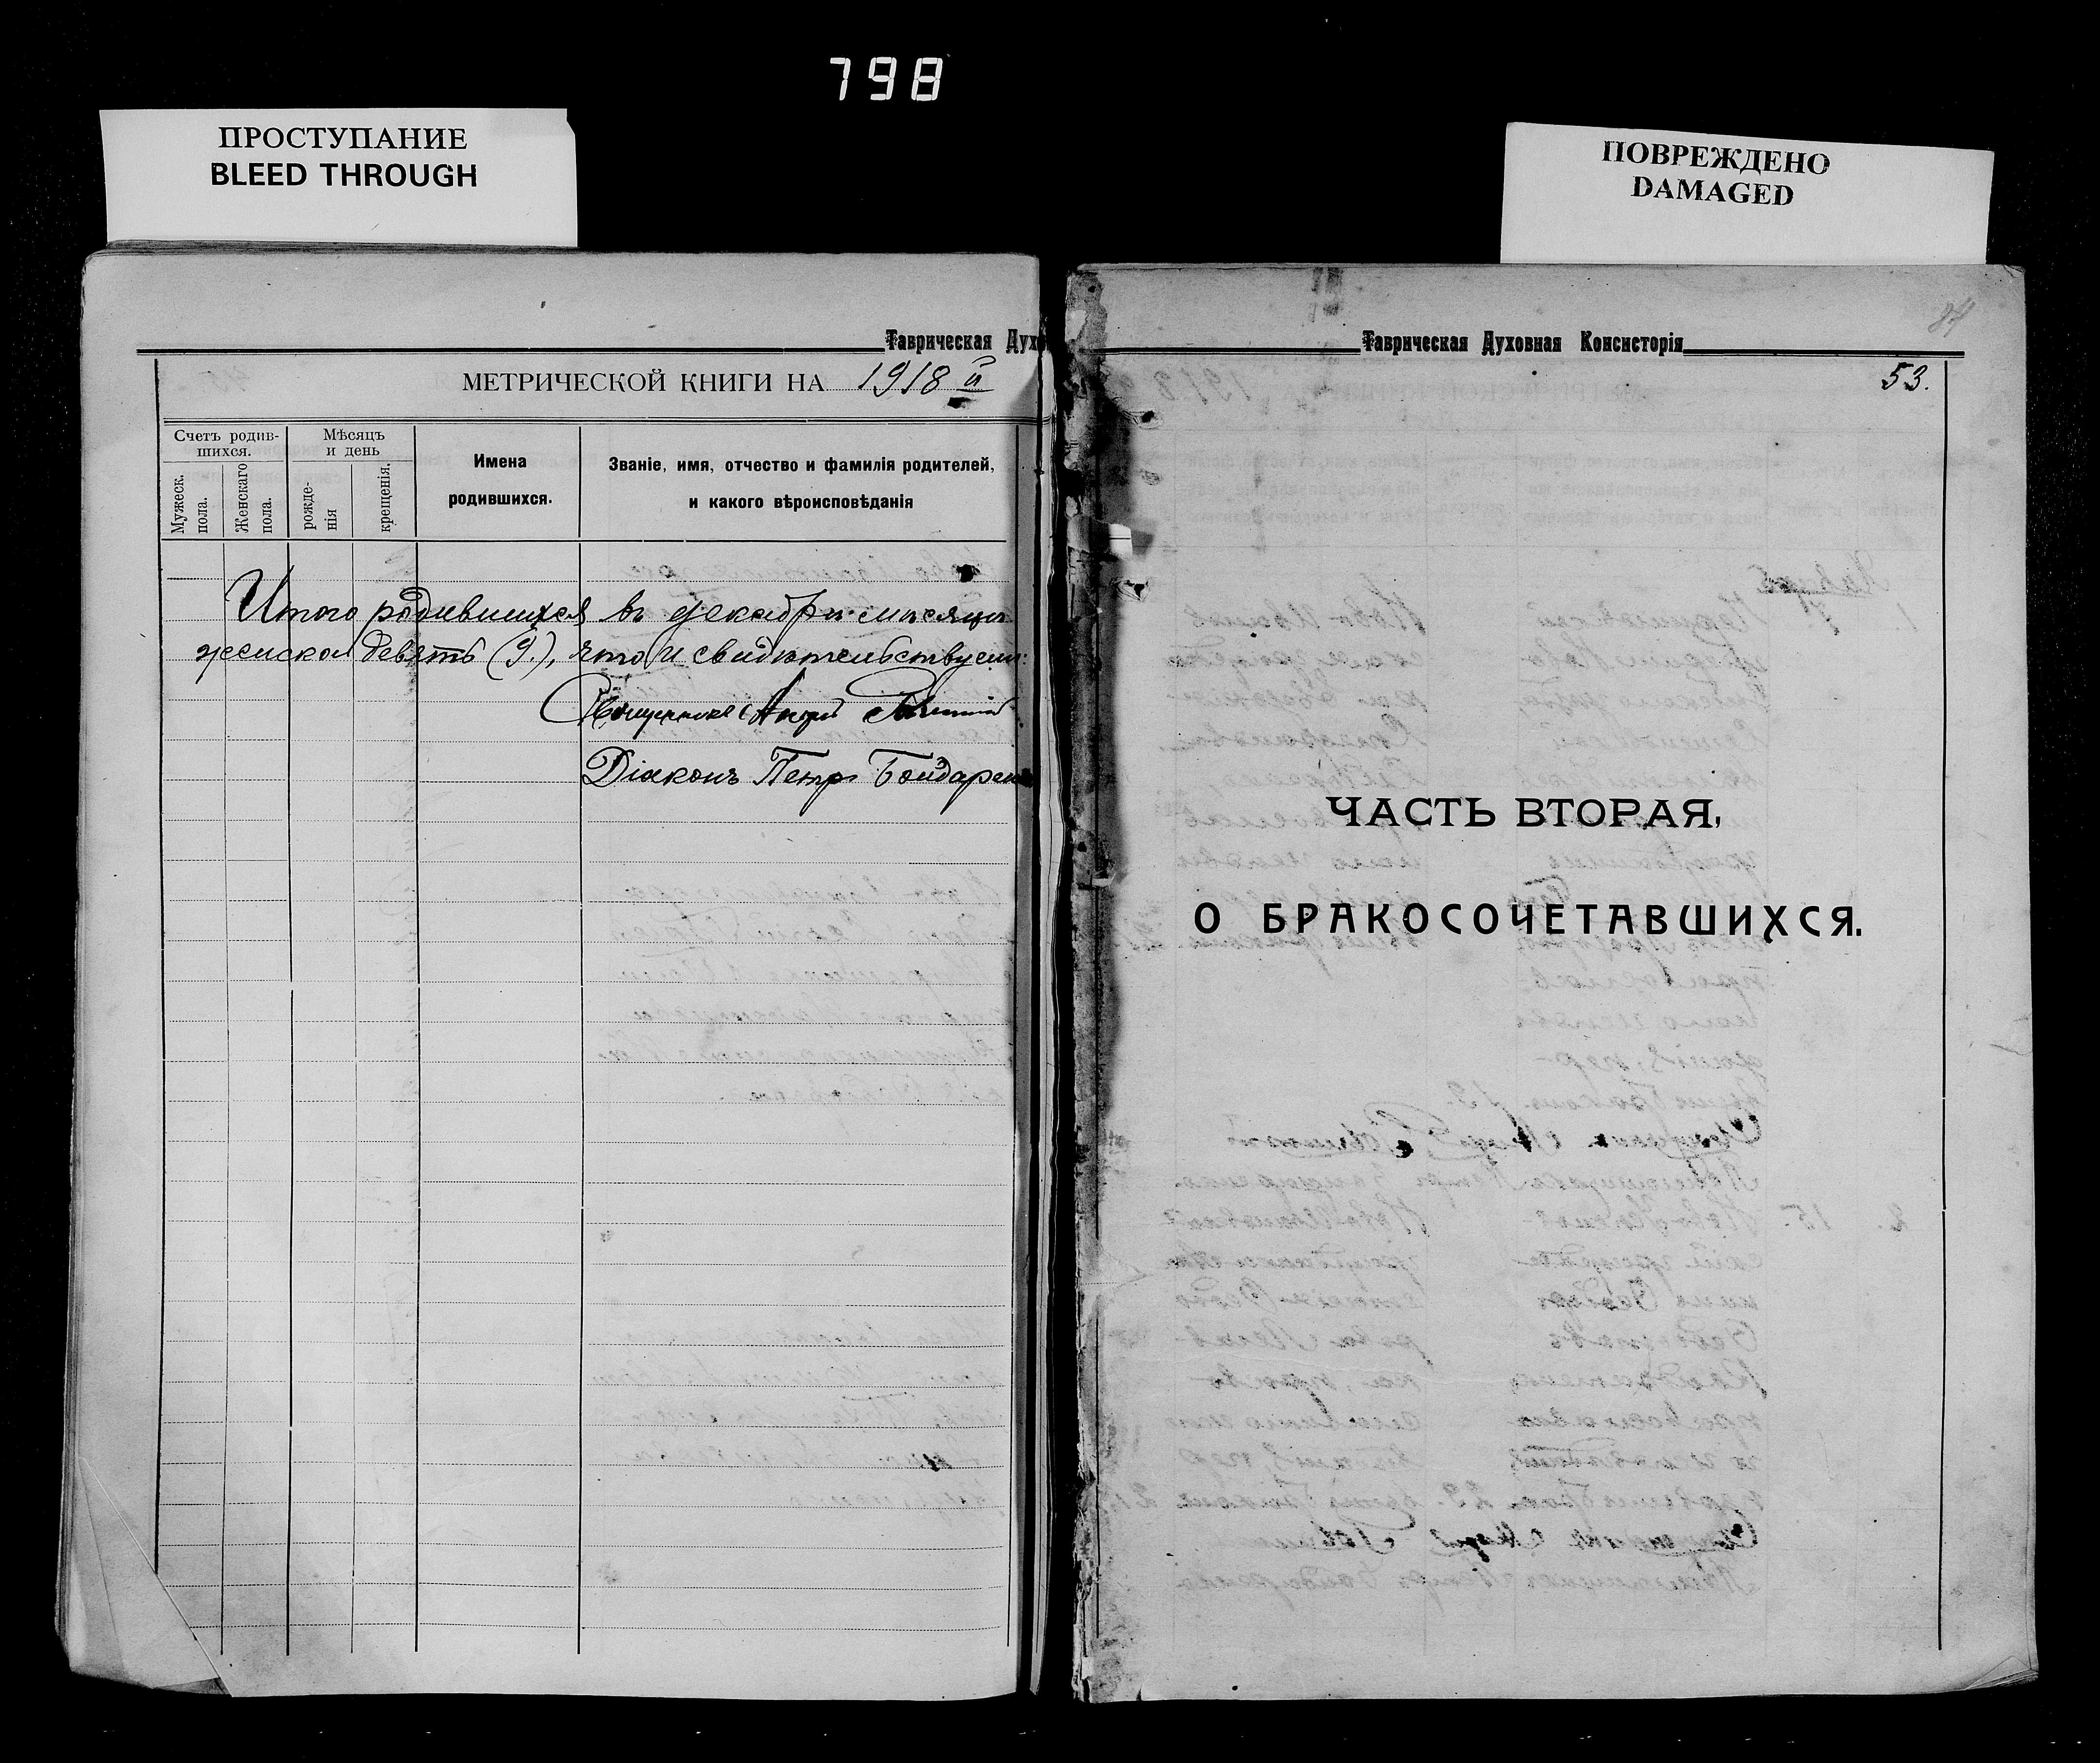 798
ПРОСТУПАНИЕ
BLEED THROUGH
ПОВРЕЖДЕНО
DAMAGED
Таврическая Дух
МЕТРИЧЕСКОЙ КНИГИ НА 1918 й
Счетъ родив-
шихся.
Мужеск.
пола.
Женскаго
пола.
Мѣсяцъ
и день
рожде-
нія
крещенія.
Имена
родившихся.
Званіе, имя, отчество и фамилія родителей,
и какого вѣроисповѣданія
Итого родившихся въ декабрѣ мѣсяцѣ
женска девять (9.), что и свидѣтельствуемъ:
Священникъ Андрей
Діаконъ Петръ Бондарен
84
Таврическая Духовная Консисторія
53.
ЧАСТЬ ВТОРАЯ,
О БРАКОСОЧЕТАВШИХСЯ.